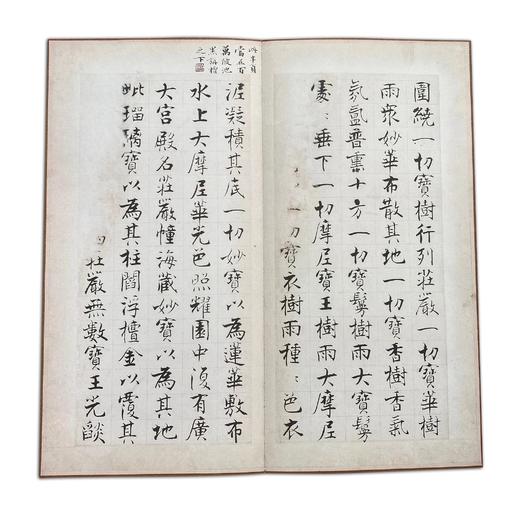 圍繞一切寶樹行列莊嚴一切寶華樹
雨眾妙華布散其地一切寶香樹香氣
氛氳普熏十方一切寶鬘樹雨大寶鬘
處〻垂下一切摩尼寶王樹雨大摩尼
一切寶衣樹雨種〻色衣
此本頁
當在百
萬陂池
黑旃檀
之下
泥凝積其底一切妙寶以為蓮華敷布
水上大摩尼華光色照耀園中復有廣
大宮殿名莊嚴幢海藏妙寶以為其地
毗瑠璃寶以為其柱閻浮檀金以覆其
莊嚴無數寶王光燄